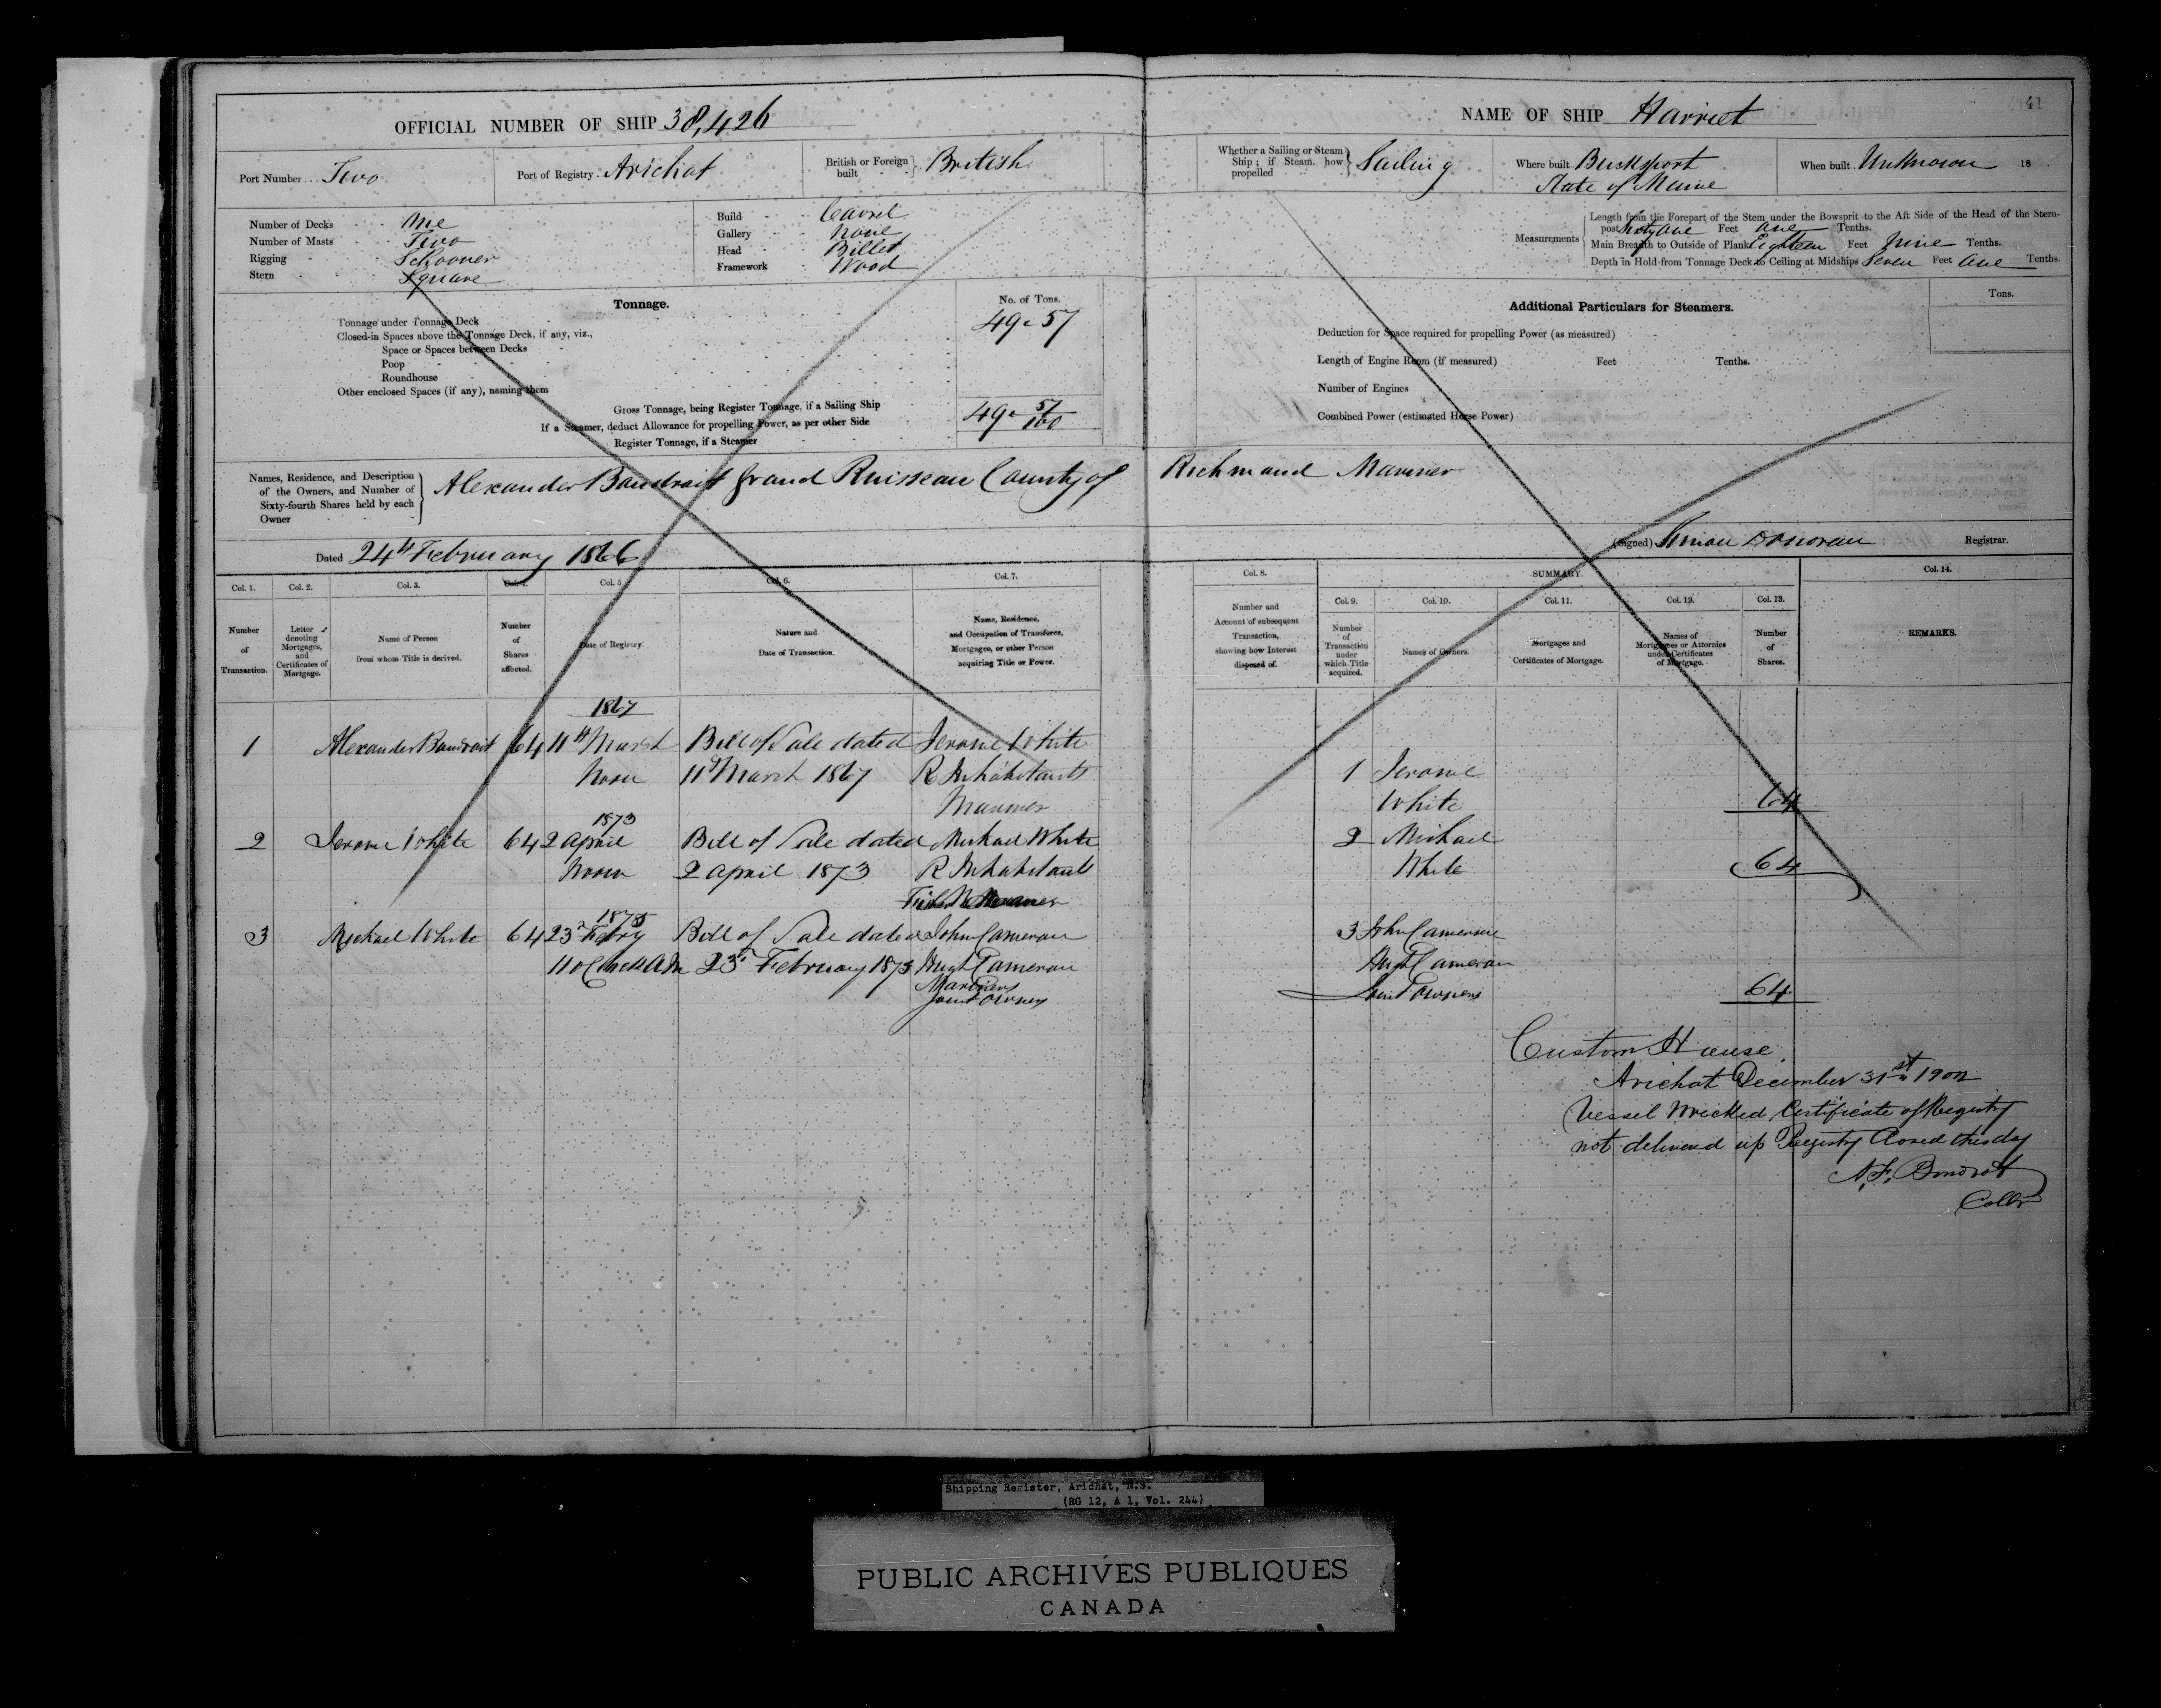 41
OFFICIAL NUMBER OF SHIP 38,426
NAME OF SHIP Harriet
Port Number Two
Port of Registry Arichat
British or Foreign built British
Whether a Sailing or Steam Ship; if Steam how propelled Sailing
Where built Bucksport State of Maine
When built Unknown 18
Number of Decks One
Number of Masts Two
Rigging Schooner
Stern Square
Build Carvel
Gallery None
Head Billet
Framework Wood
Measurements
Length from the Forepart of the Stem under the Bowsprit to the Aft Side of the Head of the Stern-
post Feet One Tenths.
Main Breadth to Outside of Plank Eighteen Feet Nine Tenths.
Depth in Hold from Tonnage Deck to Ceiling at Midships Seven Feet One Tenths.
Tonnage.
No. of Tons.
Tonnage under Tonnage Deck 49 57
Closed-in Spaces above the Tonnage Deck, if any, viz.,
Space or Spaces between Decks
Poop
Roundhouse
Other enclosed Spaces (if any), naming them
Gross Tonnage, being Register Tonnage, if a Sailing Ship 49 57/100
If a Steamer, deduct Allowance for propelling Power, as per other Side
Register Tonnage, if a Steamer
Additional Particulars for Steamers.
Tons.
Deduction for Space required for propelling Power (as measured)
Length of Engine Room (if measured) Feet Tenths.
Number of Engines
Combined Power (estimated Horse Power)
Names, Residence, and Description
of the Owners, and Number of
Sixty-fourth Shares held by each
Owner
Alexander Boudroit Grand Ruisseau County of Richmond Mariner
Dated 24th February 1866
(Signed) Simon Donovan Registrar.
Col. 1. Col. 2. Col. 3. Col. 4. Col. 5 Col. 6. Col. 7. Col. 8. SUMMARY. Col. 14.
Col. 9. Col. 10. Col. 11. Col. 12. Col. 13.
Number of Transaction.
Letter denoting Mortgages, and Certificates of Mortgage.
Name of Person from whom Title is derived.
Number of Shares affected.
Date of Registry.
Nature and Date of Transaction.
Name, Residence, and Occupation of Transferee, Mortgagee, or other Person acquiring Title or Power.
Number and Account of subsequent Transaction, showing how Interest disposed of.
Number of Transaction under which Title acquired.
Names of Owners.
Mortgages and Certificates of Mortgage.
Names of Mortgagees or Attornies under Certificates of Mortgage.
Number of Shares.
REMARKS.
1867
1 Alexander Boudroit 64 11th March Bill of Sale dated Jerome White
Noon 11th March 1867 R Inhabitants 1 Jerome
Mariner White 64
1873
2 Jerome White 64 2 April Bill of Sale dated Michael White 2 Michael
Noon 2 April 1873 R Inhabitants White 64
1875
3 Michael White 64 23 Febry Bill of Sale dated John Cameron 3 John Cameron
11 oClock AM 23 February 1873 Hugh Cameron Hugh Cameron
Mariners
Joint Owners Joint Owners 64
Custom House.
Arichat December 31st 1902
Vessel Wrecked Certificate of Registry
not delivered up Registry Closed this day
Collr
Shipping Register, Arichat, N.S.
(RG 12, A 1, Vol. 244)
PUBLIC ARCHIVES PUBLIQUES
CANADA